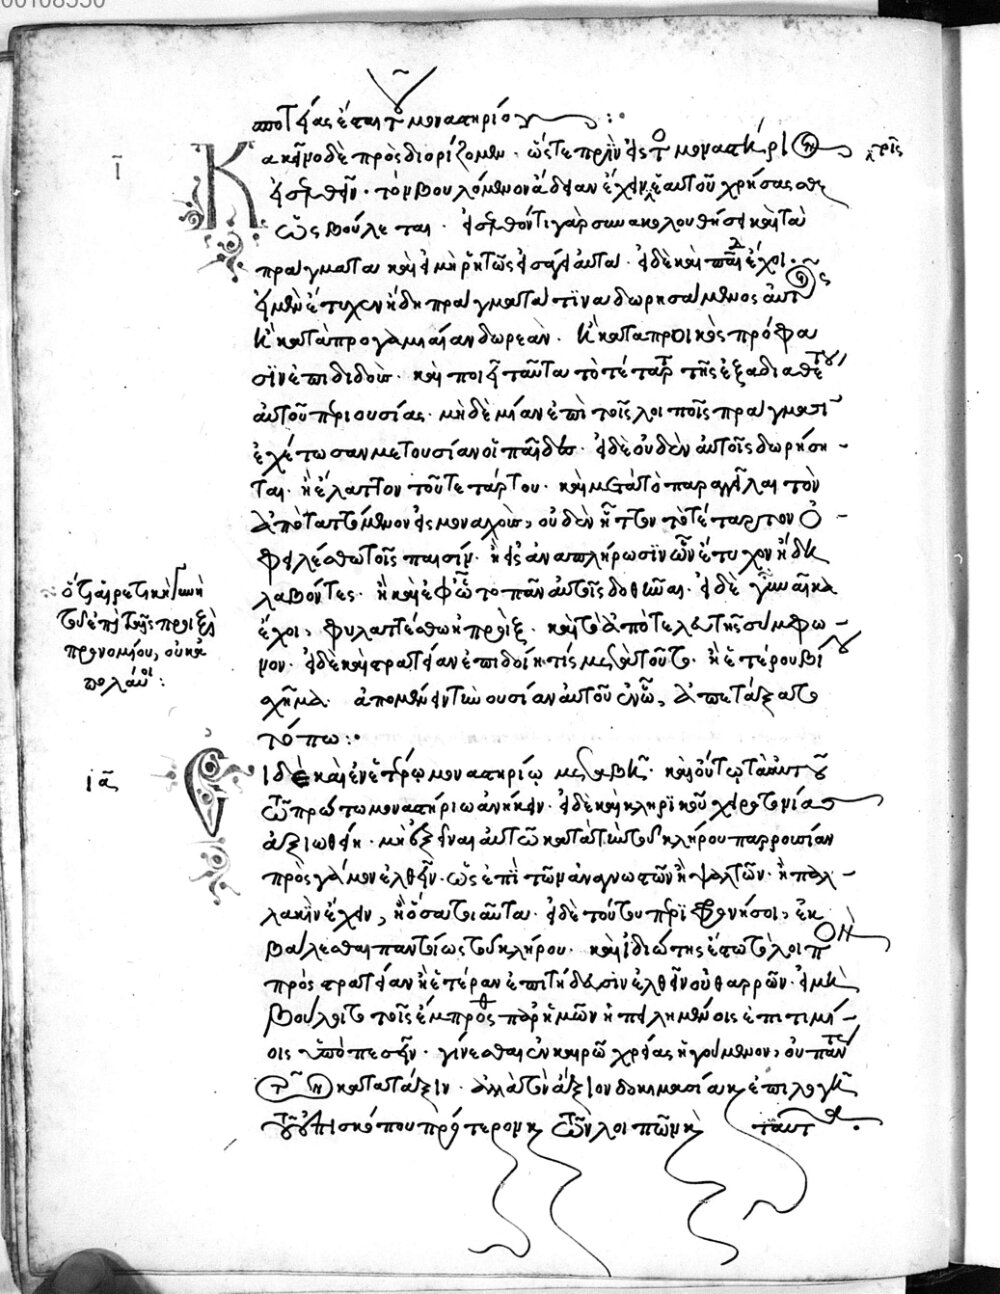 00108550
ποτείας ἔσται τῷ μοναστηρίῳ :
ι
Κακεῖνο δὲ προσδιορίζομεν· ὥστε πρὶν εἰς τὸ μοναστήριον
εἰσελθεῖν· τὸν βουλόμενον ἄδειαν ἔχειν ἑαυτοῦ χρήσασθαι
ὡς βούλεται· εἰσελθόντι γὰρ συνακολουθήσει καὶ τὰ
πράγματα καὶ εἰ μὴ ῥητῶς εἰσάγει αὐτά· εἰ δὲ καὶ παῖδας ἔχοι·
εἰ μὲν ἔτυχεν ἤδη πράγματά τινα δωρησάμενος αὐτοῖς
ἢ κατὰ προγαμιαίαν δωρεὰν· ἢ κατὰ προικὸς πρόφα
σιν ἐπιδιδούς· καὶ ποιεῖ ταῦτα τὸ τέταρτον τῆς ἐξ ἀδιαθέτου
αὐτοῦ περιουσίας· μηδεμίαν ἐπὶ τοῖς λοιποῖς πράγμασι
ἐχέτωσαν μετουσίαν οἱ παῖδες· εἰ δὲ οὐδὲν αὐτοῖς δωρήση
ται· ἢ ἔλαττον τοῦ τετάρτου· καὶ μετὰ τὸ παραγγεῖλαι τὸν
ἀποταττόμενον εἰς μοναχούς, οὐδὲν ἧττον τὸ τέταρτον ὀ
φειλέσθω τοῖς παισίν· ἢ εἰς ἀναπλήρωσιν ὧν ἔτυχον ἤδη
λαβόντες· ἢ καὶ ἐφ' ᾧ τὸ πᾶν αὐτοῖς δοθῆναι· εἰ δὲ γυναῖκα
ἔχοι, φυλαττέσθω ἡ προὶξ· καὶ τὸ ἀπὸ τελευτῆς σύμφω
νον· εἰ δὲ καὶ στρατείαν ἐπιδοίη τις μετὰ τοῦτο· ἢ ἑτέρου βίου
σχῆμα· ἀπομένει τὴν οὐσίαν αὐτοῦ ἐν ᾧ, ἀπετάξατο
τόπω :
ὅτι αἱρετικὴ γυνὴ
τοῦ ἐπὶ τῆς προικὸς
προνομίου, οὐκ ἀ
πολαύει :
ια
Εἰ δὲ καὶ ἐν ἑτέρῳ μοναστηρίῳ μεταβῇ· καὶ οὕτω τὰ αὐτοῦ
τῷ πρώτω μοναστηρίω ἀνήκειν· εἰ δὲ καὶ κληρικοῦ χειροτονίας
ἀξιωθείη· μὴ ἐξεῖναι αὐτῶ κατὰ τὴν τοῦ κλήρου παρρουσίαν
πρὸς γάμον ἐλθεῖν· ὡς ἐπὶ τῶν ἀναγνωστῶν ἢ ψαλτῶν· ἢ παλ
λακὴν ἔχειν, ἢ ὅσα τοιαῦτα· εἰ δὲ τούτου περιφρονήσοι, ἐκ
βάλλεσθαι παντοίως τοῦ κλήρου· καὶ ἰδιώτης ἔστω τὸ λοιπὸν
πρὸς στρατείαν ἢ ἑτέραν ἐπιτήδευσιν ἐλθεῖν οὐ θαρρῶν· εἰ μὴ
βούλοιτο τοῖς ἔμπροσθεν παρ' ἡμῶν ἠπειλημένοις ἐπιτιμί
οις ὑποπεσεῖν· γίνεσθαι ἐν καιρῶ χρείας ἡγούμενον, οὐ πάντως
τὸν κατὰ τάξιν· ἀλλὰ τὸν ἄξιον δοκιμασία καὶ ἐπιλογῇ
τοῦ ἐπισκόπου πρότερον καὶ τῶν λοιπῶν καὶ ταύτῃ.